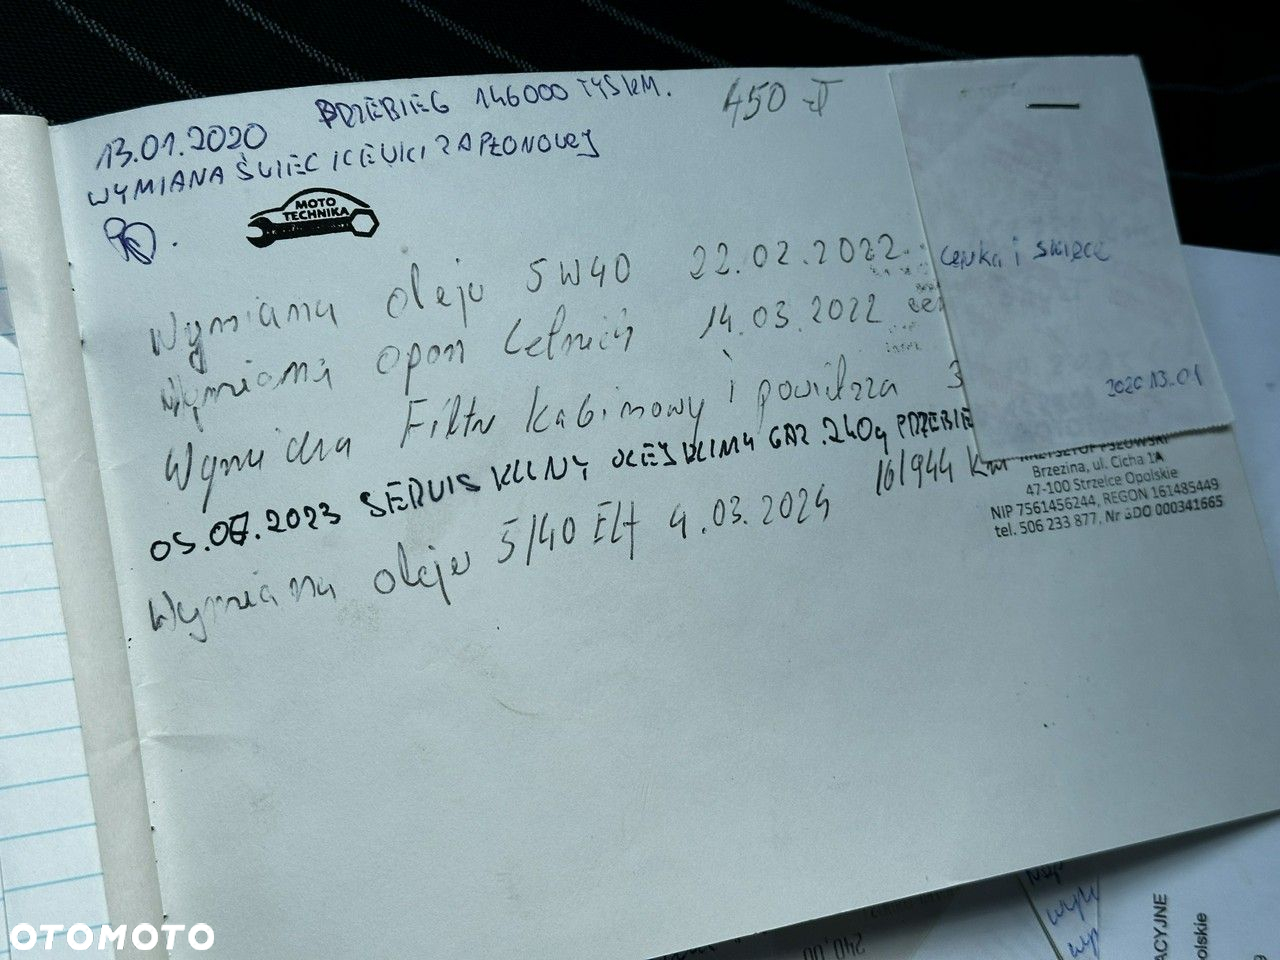 13.01.2020 PRZEBIEG 146000 TYSKM. 450 zł
WYMIANA ŚWIEC I CEWKI ZAPŁONOWEJ
MOTO
TECHNIKA
Wymiana oleju 5W40 22.02.2022
Wymiana opon Letnich 14.03.2022
Wymiana Filtr kabinowy i powietrza 3
05.07.2023 SERWIS KLIMY OLEJ KLIMA GAZ .240g PRZEBIE
161944 Km
Wymiana oleju 5/40 Elf 4.03.2024
cewka i świece
2020 13.01
KRZYSZTOF PSZOWSKI
Brzezina, ul. Cicha 1A
47-100 Strzelce Opolskie
NIP 7561456244, REGON 161485449
tel. 506 233 877, Nr BDO 000341665
240,00
ACYJNE
olskie
OTOMOTO